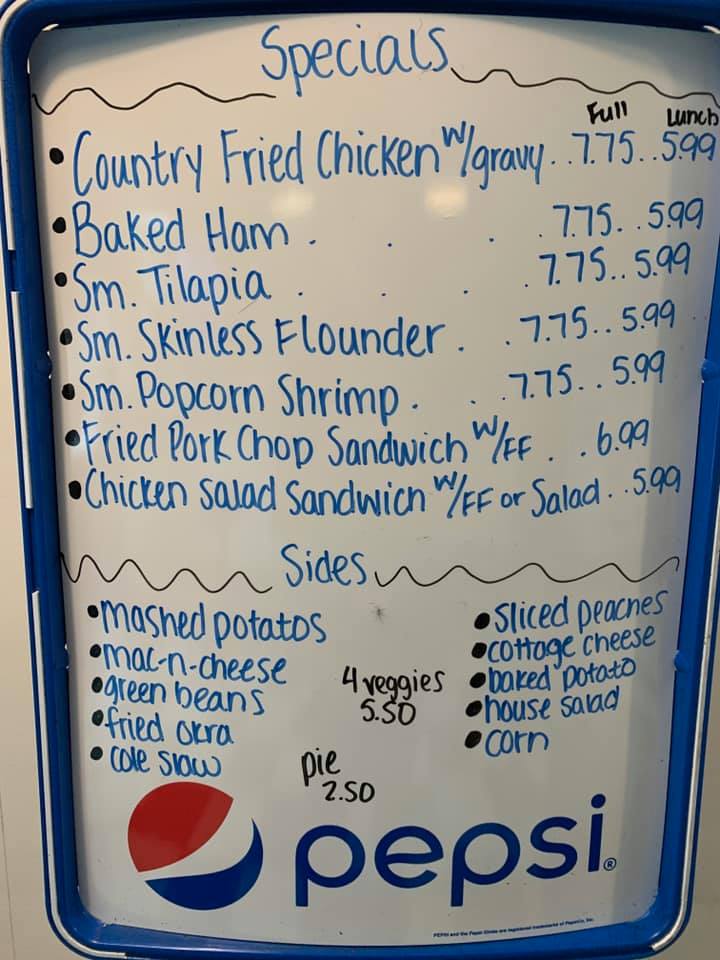 Specials
Full Lunch
• Country Fried Chicken w/gravy . . 7.75 . . 5.99
• Baked Ham . . . . 7.75 . . 5.99
• Sm. Tilapia . . . . 7.75 . . 5.99
• Sm. Skinless Flounder . . 7.75 . . 5.99
• Sm. Popcorn Shrimp . . . 7.75 . . 5.99
• Fried Pork Chop Sandwich w/FF . . 6.99
• Chicken Salad Sandwich w/FF or Salad . . 5.99
Sides
• mashed potatos
• mac-n-cheese
• green beans
• fried okra
• cole slaw
4 veggies
5.50
pie
2.50
• sliced peaches
• cottage cheese
• baked potato
• house salad
• corn
pepsi®
PEPSI and the Pepsi Globe are registered trademarks of PepsiCo, Inc.